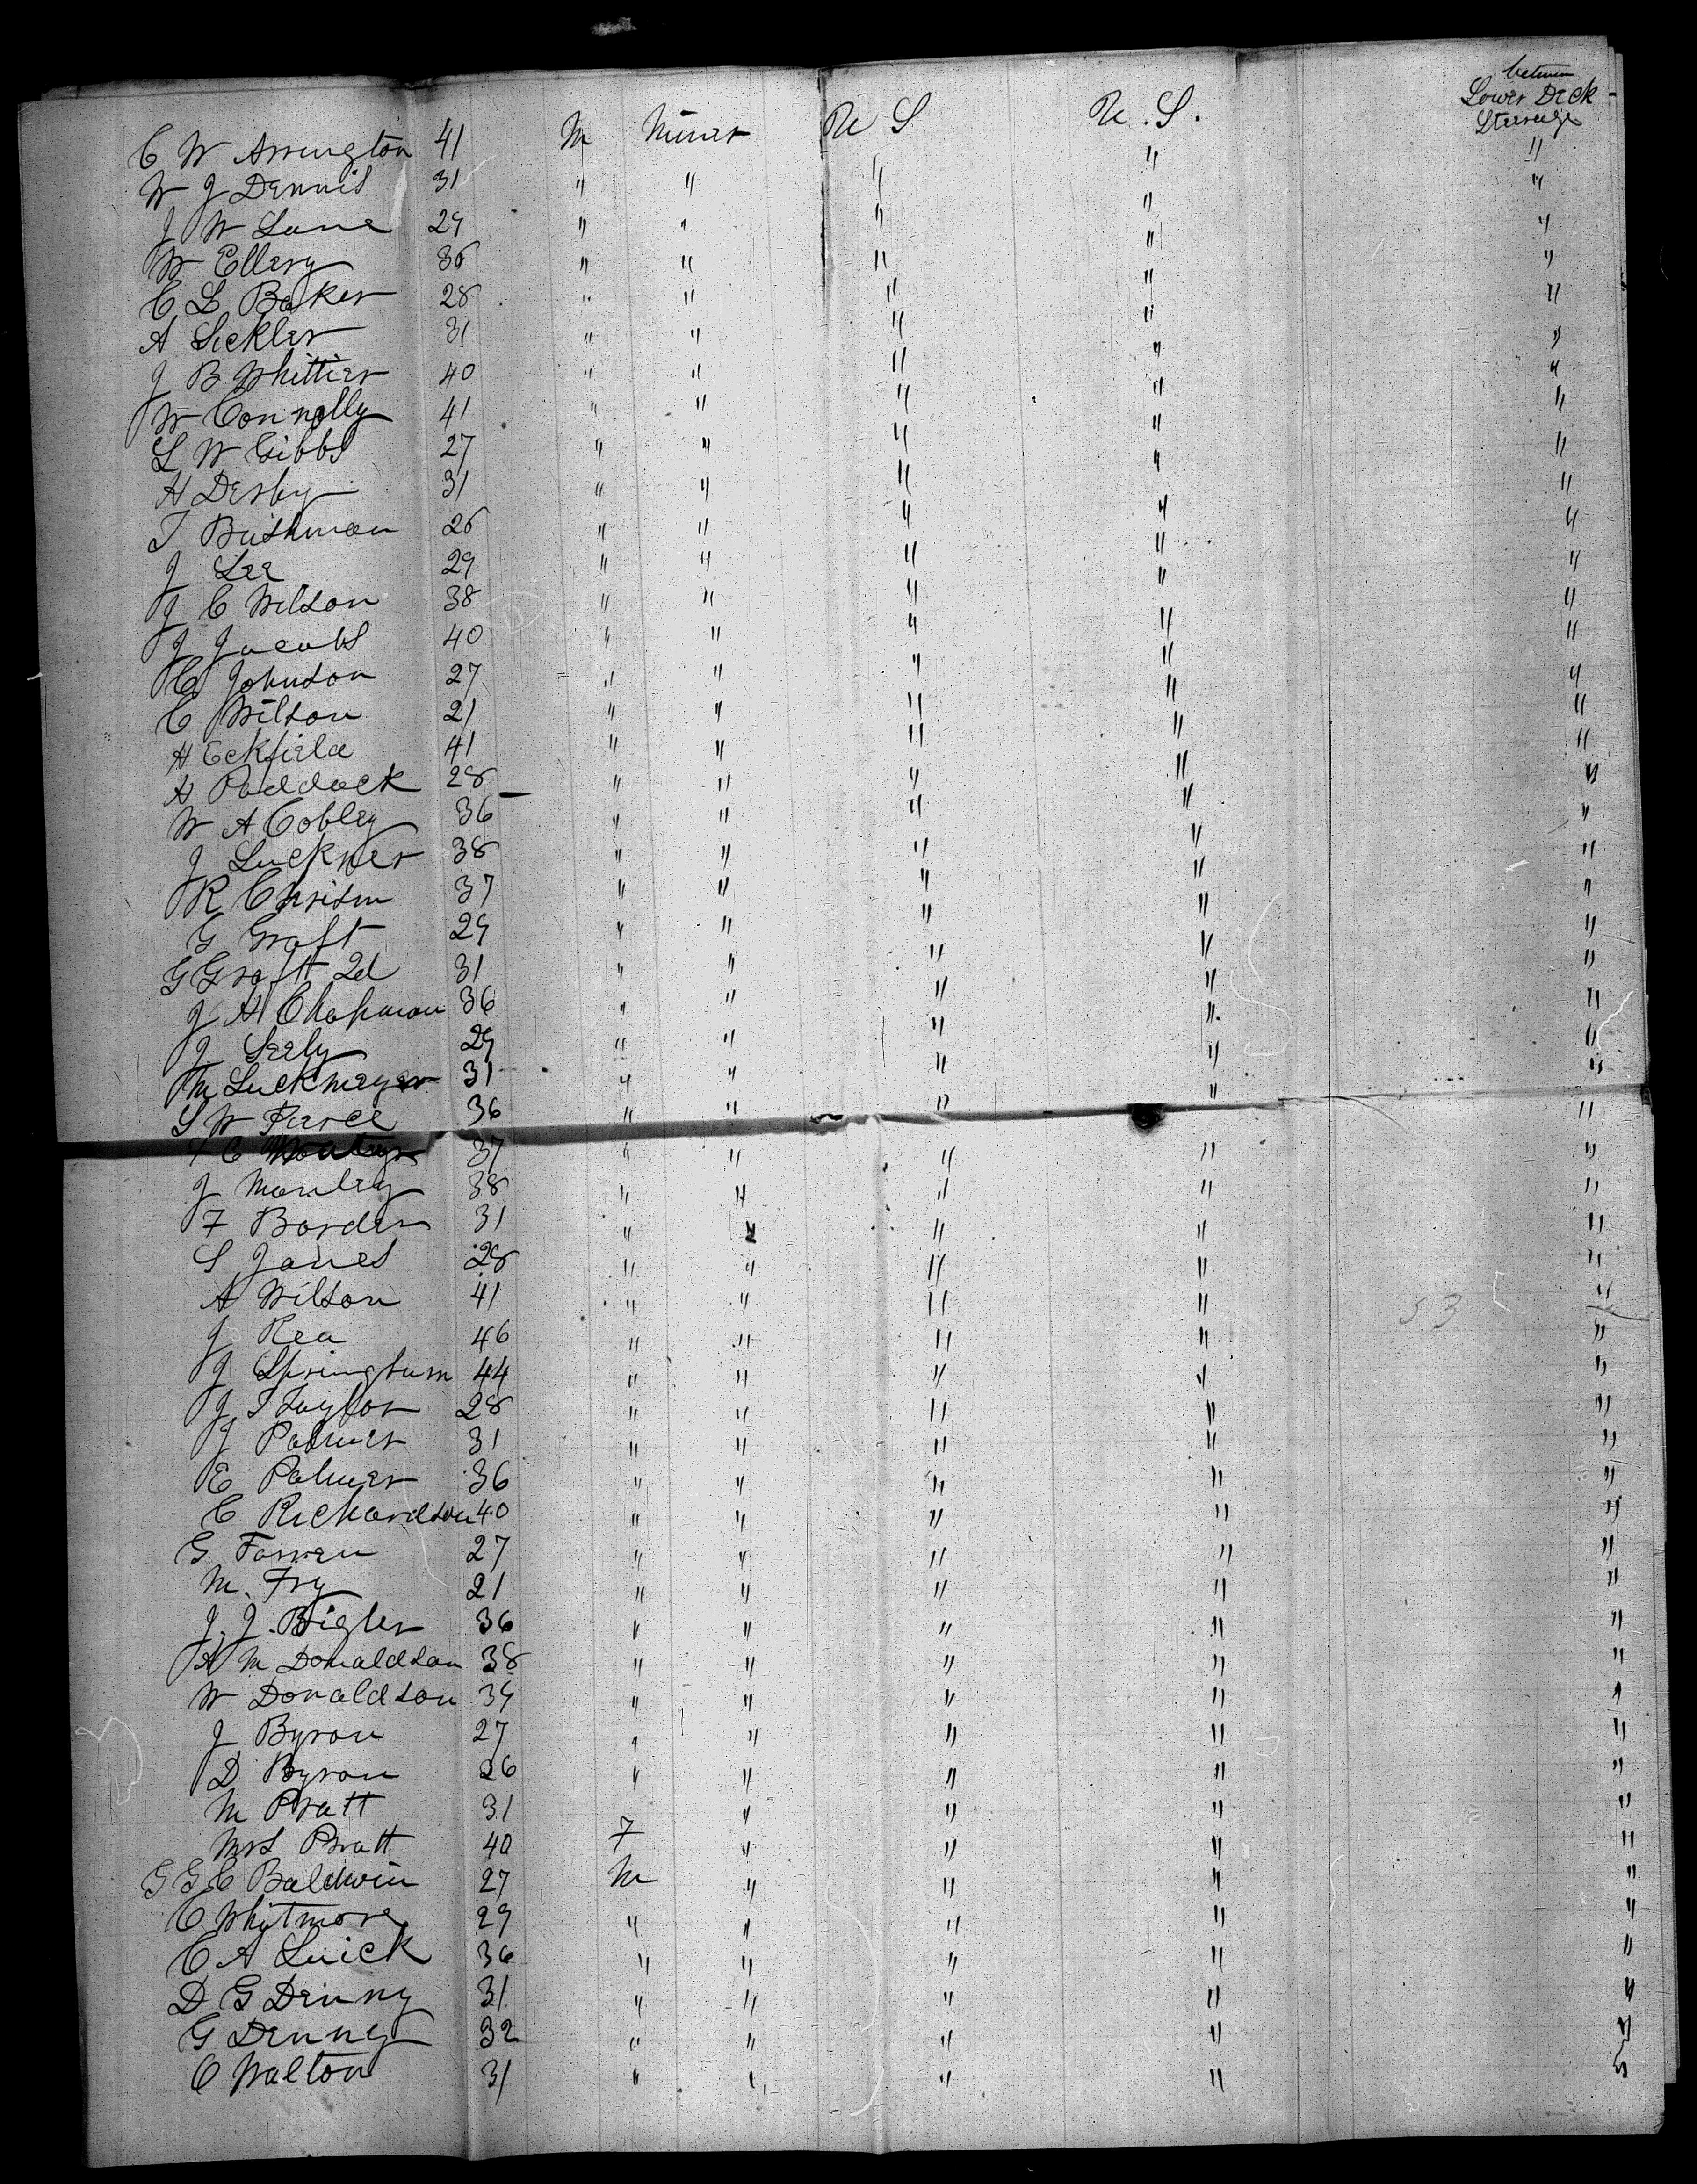 between
Lower Deck
Steerage
C W Arrington 41 M Miner U S U. S. "
W J Dennis 31 " " " " "
J W Lane 29 " " " " "
W Ellery 36 " " " " "
C L Baker 28 " " " " "
A Sickler 31 " " " " "
J B Whittier 40 " " " " "
W Connolly 41 " " " " "
L W Gibbs 27 " " " " "
H Derby 31 " " " " "
T Bushman 26 " " " " "
J Lee 29 " " " " "
J C Wilson 38 " " " " "
J Jacobs 40 " " " " "
C Johnson 27 " " " " "
C Wilson 21 " " " " "
H Eckfield 41 " " " " "
A Paddock 28 " " " " "
W A Cobley 36 " " " " "
J Luckner 38 " " " " "
R 37 " " " " "
G Graft 29 " " " " "
G Graft 2d 31 " " " " "
J H Chapman 36 " " " " "
J Seely 29 " " " " "
M Luckmeyer 31 " " " " "
S W Pierce 36 " " " " "
C 37 " " " " "
J Manley 38 " " " " "
F Borden 31 " " " " "
S Jones 28 " " " " "
A Wilson 41 " " " " "
J Rea 46 " " " " "
53
J Springburn 44 " " " " "
J T Taylor 28 " " " " "
J Palmer 31 " " " " "
E Palmer 36 " " " " "
C Richardson 40 " " " " "
G Farren 27 " " " " "
M. Fry 21 " " " " "
J. J. Bigler 36 " " " " "
A M Donaldson 38 " " " " "
W Donaldson 39 " " " " "
J Byron 27 " " " " "
D Byron 26 " " " " "
M Pratt 31 " " " "
Mrs Pratt 40 F " " " "
G G C Baldwin 27 M " " " "
C Whytmore 29 " " " " "
C A Luick 36 " " " " "
D G Denny 31 " " " " "
G Denney 32 " " " " "
C Walton 31 " " " " "